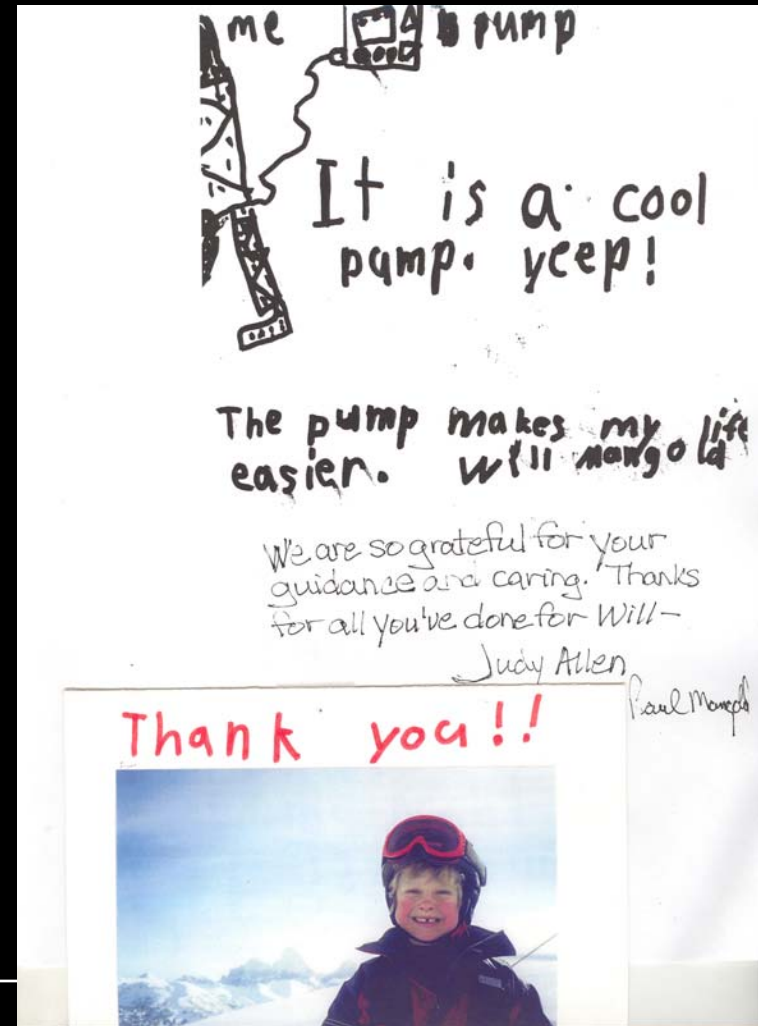 me pump
It is a cool
pump. yeep!
The pump makes my life
easier. Will mangold
We are so grateful for your
guidance and caring. Thanks
for all you've done for Will-
Judy Allen
Paul Mangold
Thank you!!